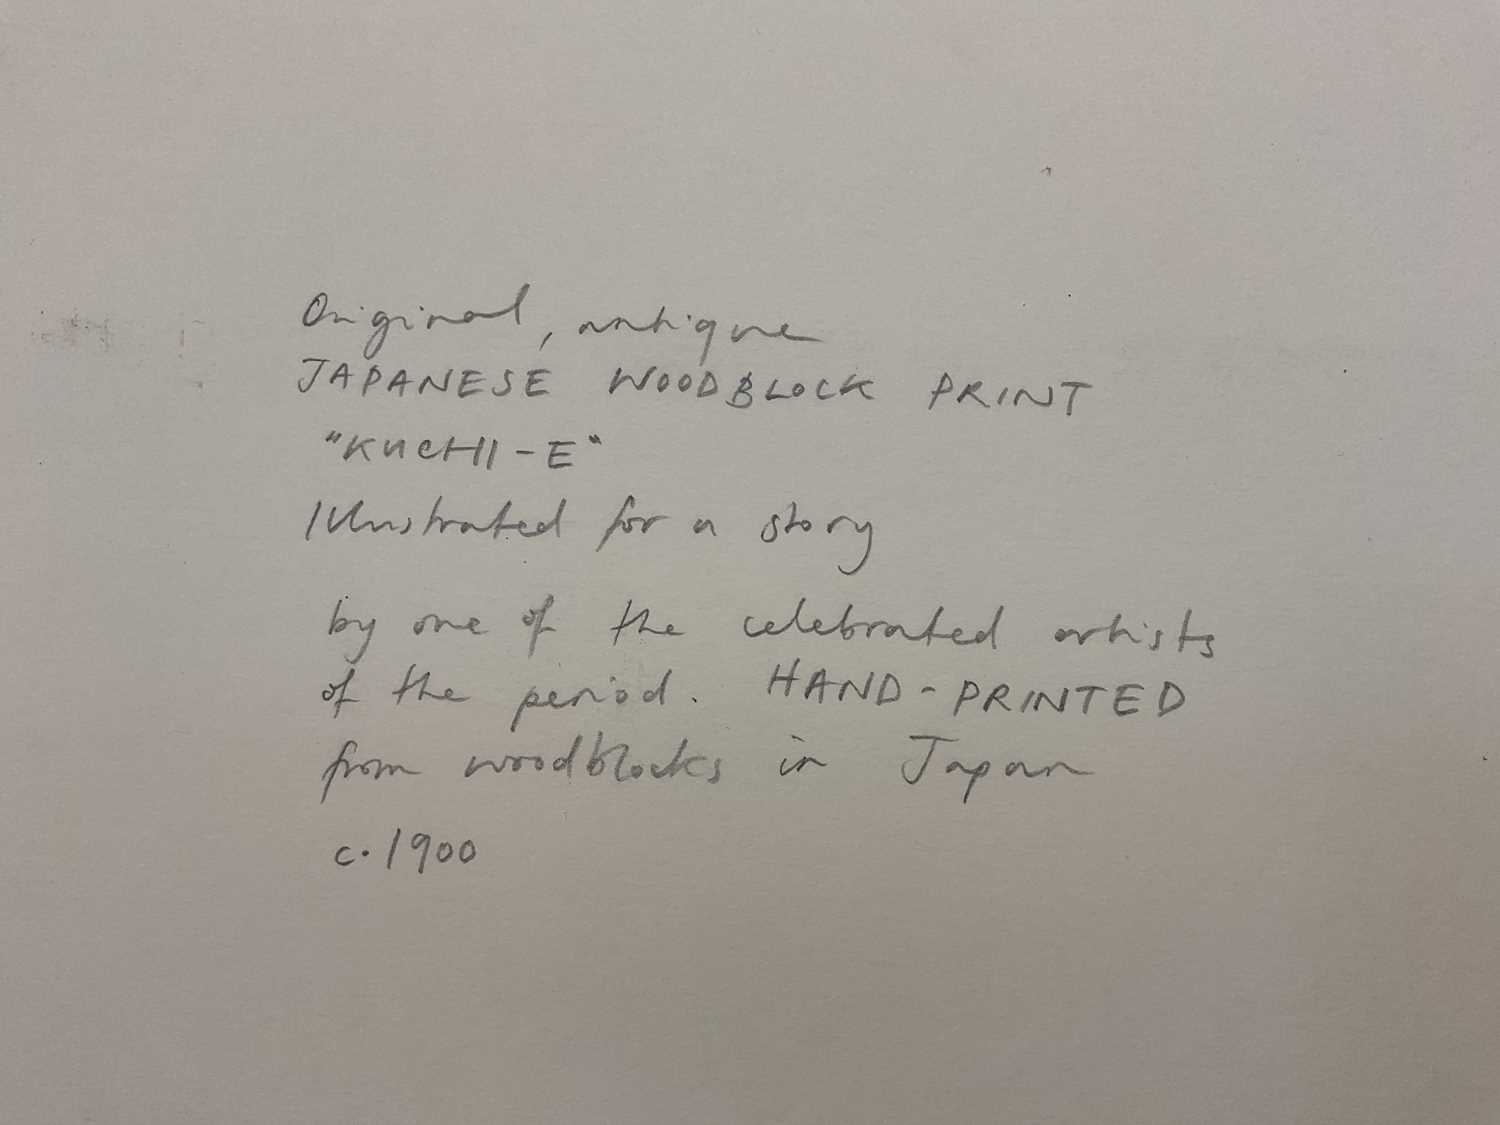 Original, antique
JAPANESE WOODBLOCK PRINT
"KUCHI-E"
Illustrated for a story
by one of the celebrated artists
of the period. HAND-PRINTED
from woodblocks in Japan
c.1900